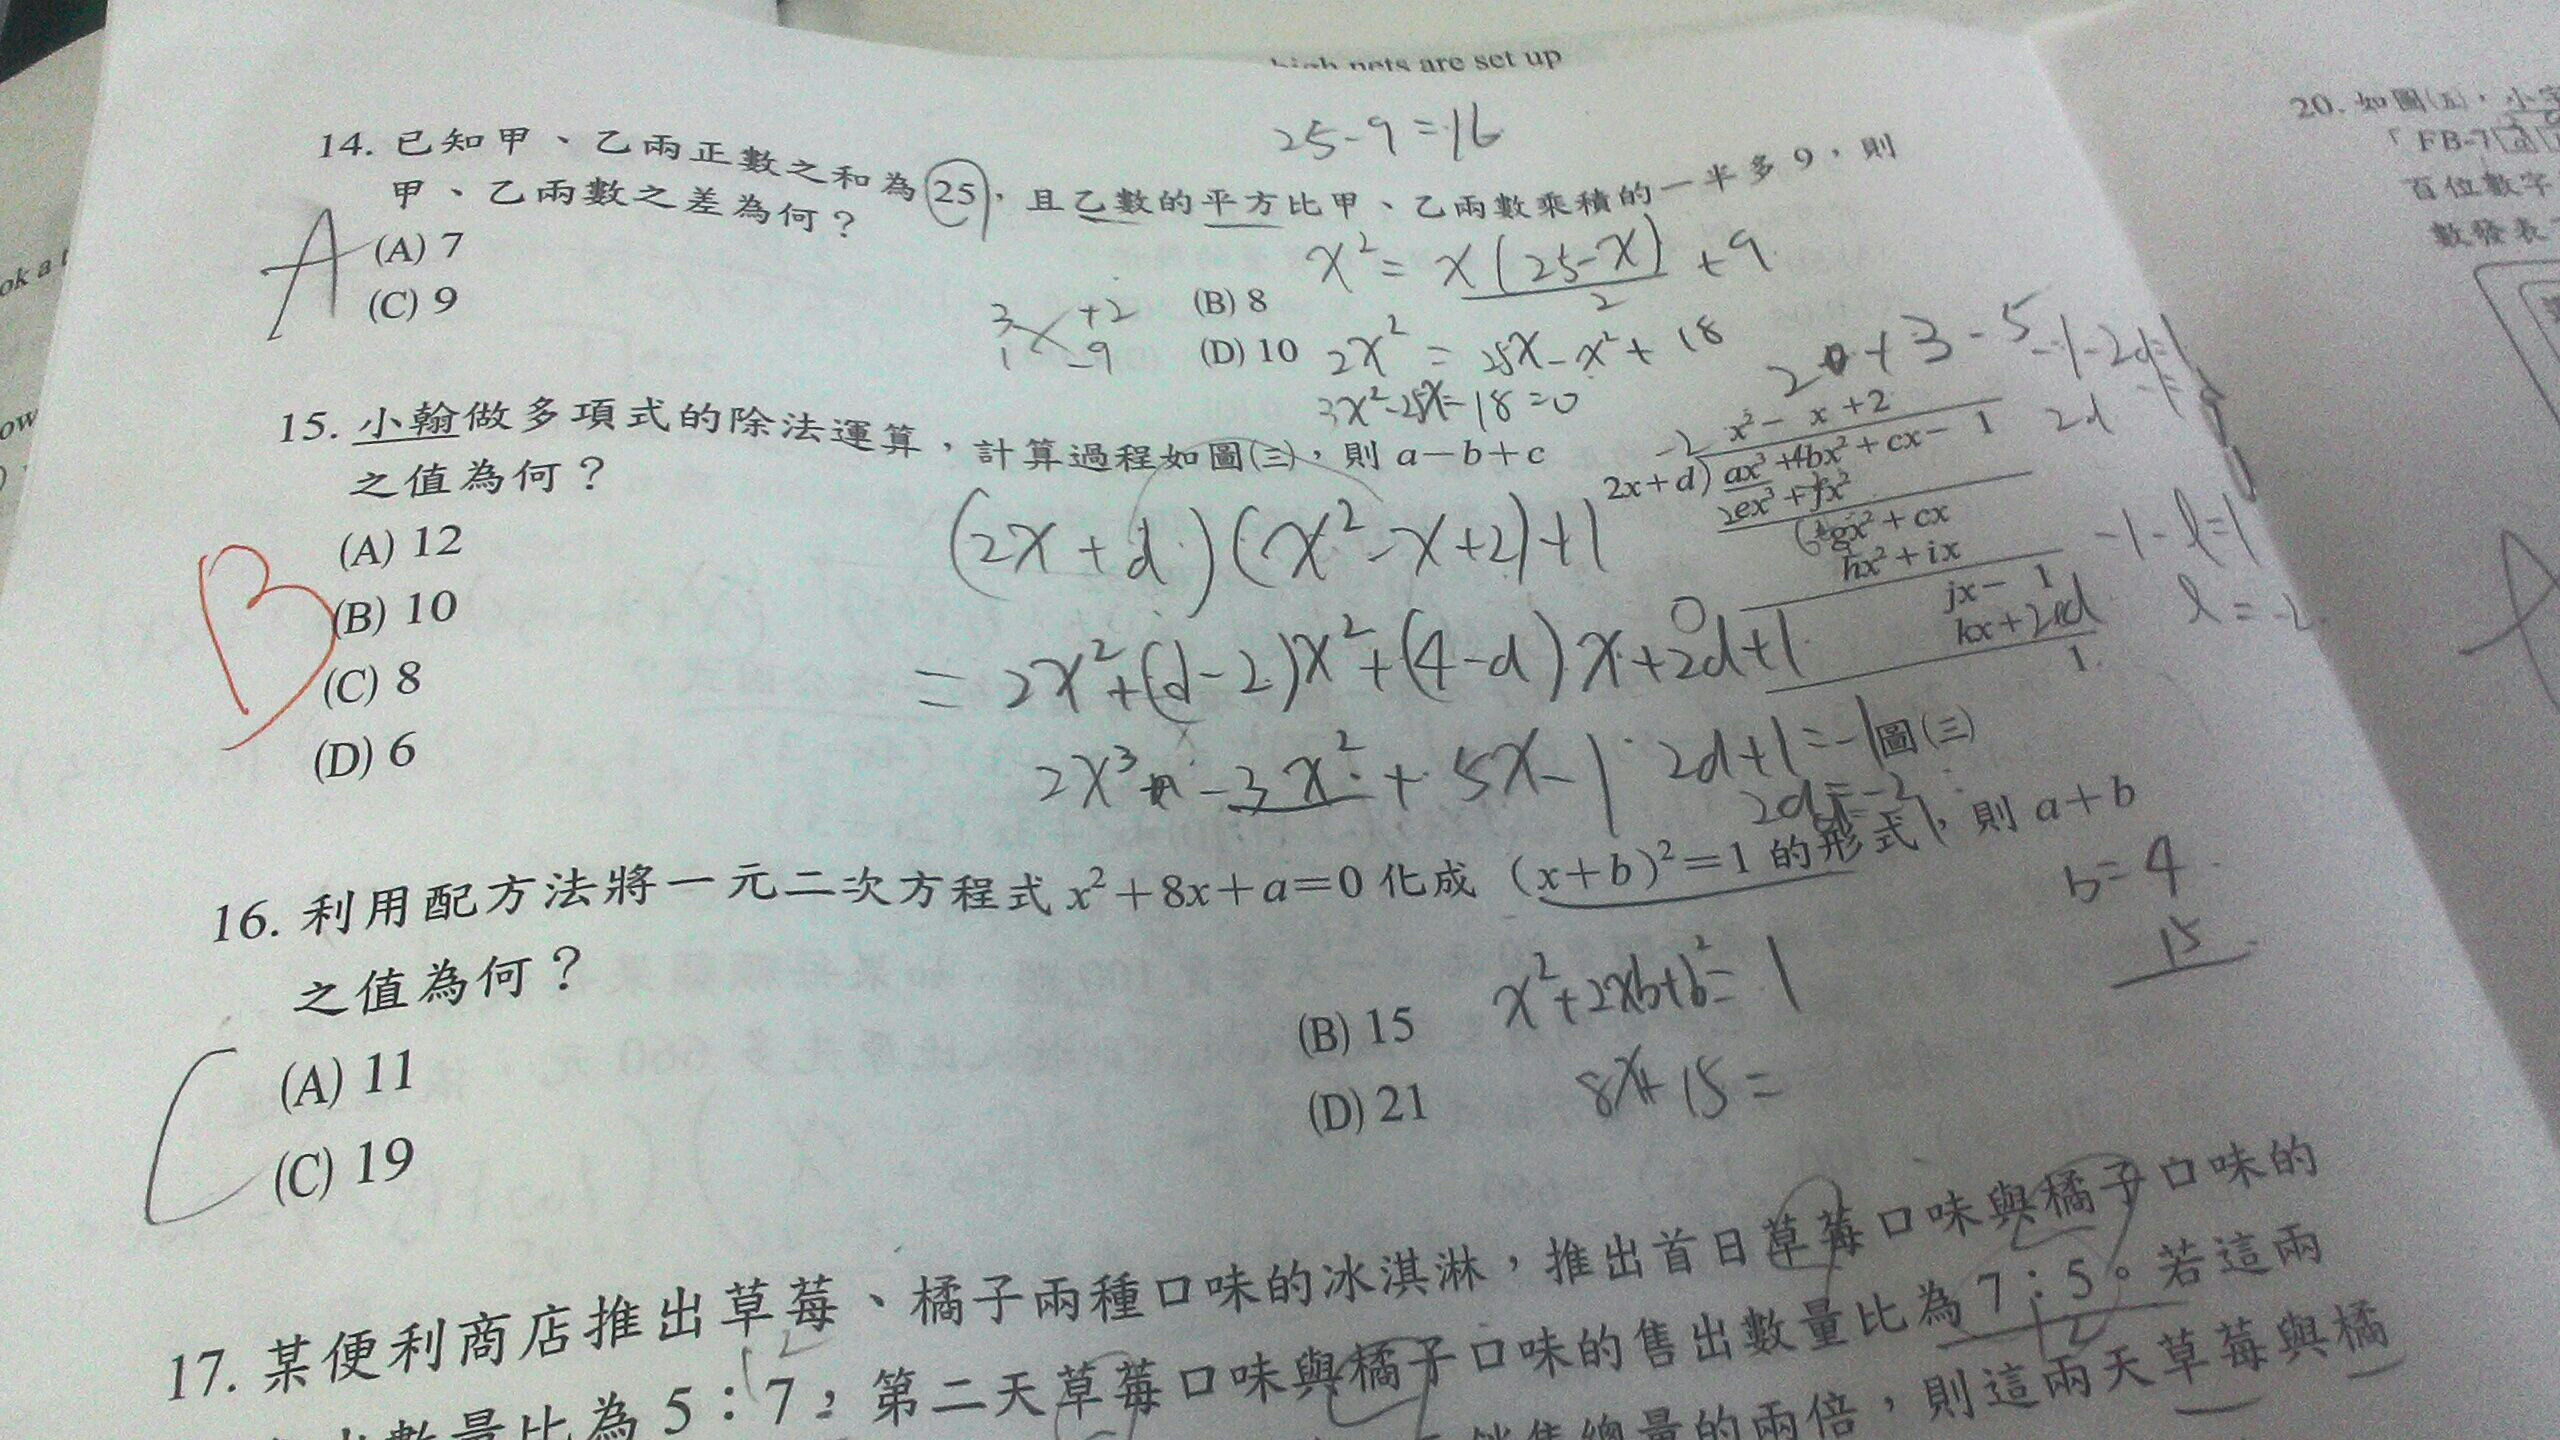 high nets are set up
25-9=16
14. 已知甲、乙兩正數之和為25，且乙數的平方比甲、乙兩數乘積的一半多9，則
甲、乙兩數之差為何？
A
(A) 7
(B) 8
(C) 9
(D) 10
x² = x(25-x)/2 + 9
3 +2
1 -9
2x² = 25x - x² + 18
3x²-25x-18=0
15. 小翰做多項式的除法運算，計算過程如圖(三)，則 a-b+c
之值為何？
B
(A) 12
(B) 10
(C) 8
(D) 6
x² - x + 2
2x+d) ax³ + bx² + cx - 1
ex³ + fx²
gx² + cx
hx² + ix
jx - 1
kx + 2d
1
圖(三)
-1-l=1
l=-2
(2x+d)(x²-x+2)+1
=2x²+(d-2)x²+(4-d)x+2d+1
2x³ -3x²+5x-1
2d+1=-1
2d=-2
16. 利用配方法將一元二次方程式 x²+8x+a=0 化成 (x+b)²=1 的形式，則 a+b
之值為何？
C
(A) 11
(B) 15
(C) 19
(D) 21
b=4
15
x²+2xb+b²=1
8x+15=
17. 某便利商店推出草莓、橘子兩種口味的冰淇淋，推出首日草莓口味與橘子口味的
出數量比為 5：7，第二天草莓口味與橘子口味的售出數量比為 7：5。若這兩
銷售總量的兩倍，則這兩天草莓與橘
20. 如圖(五)，小
「FB-7
百位數字
數發表